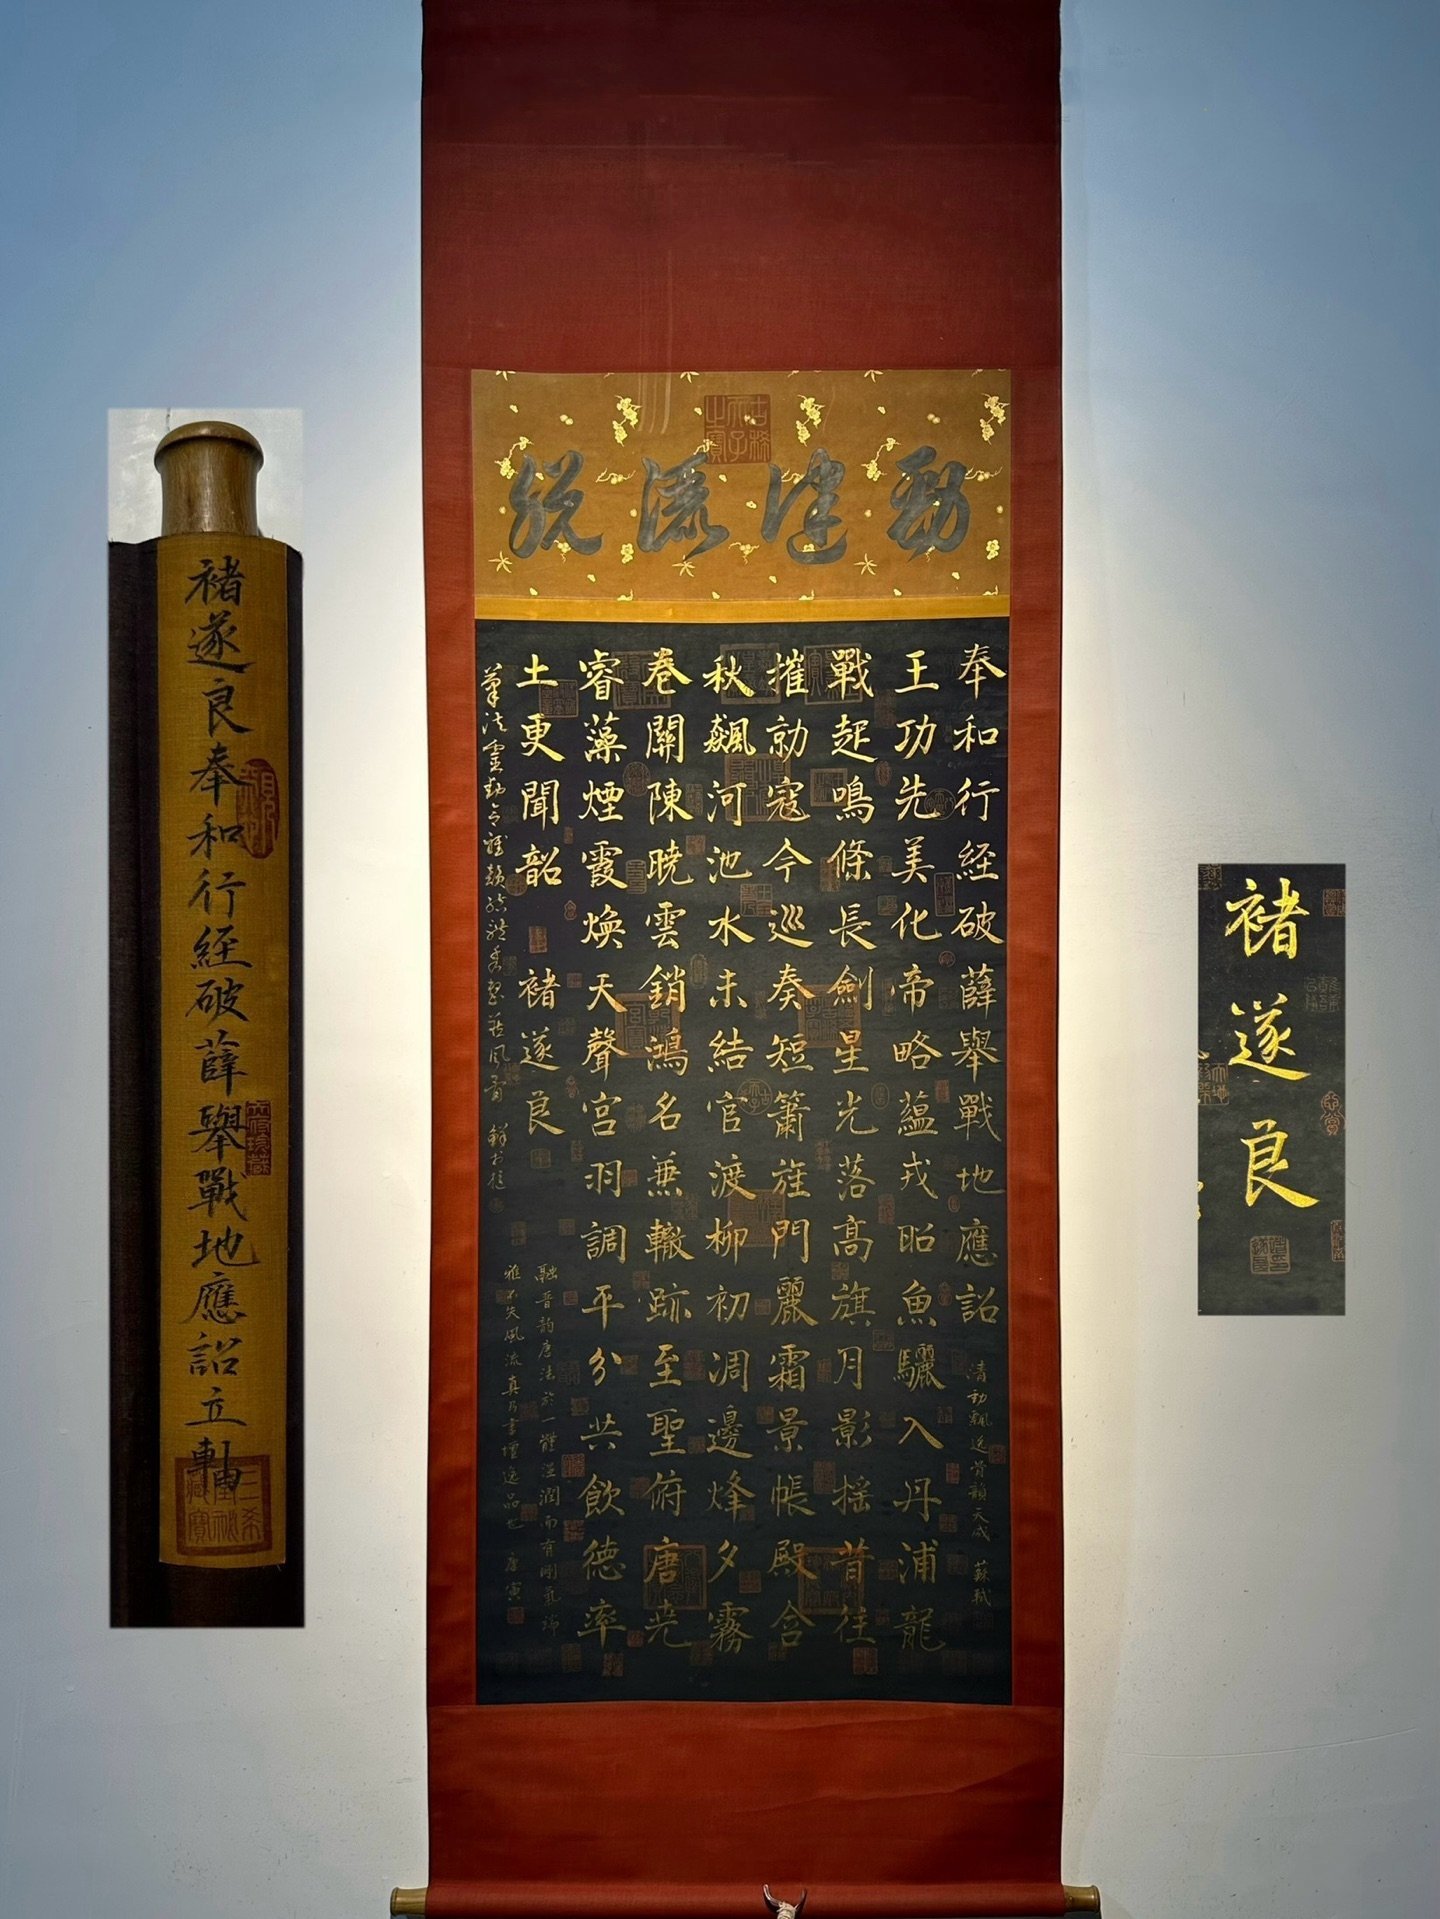 勁健流脫
奉和行経破薛舉戰地應詔
清勁飄逸骨韻天成 蘇軾
王功先美化帝略蘊戎昭魚驪入丹浦龍
戰起鳴條長劍星光落高旗月影搖昔往
摧勍寇今巡奏短簫旌門麗霜景帳殿含
秋飆河池水未結官渡柳初凋邊烽夕霧
卷關陳曉雲銷鴻名兼轍跡至聖俯唐堯
睿藻煙霞煥天聲宮羽調平分共飲德率
土更聞韶 褚遂良
融晉韵唐法於一體溫潤而有剛氣端
雅不失風流真乃書壇逸品也 唐寅
褚遂良奉和行経破薛舉戰地應詔立軸
褚遂良